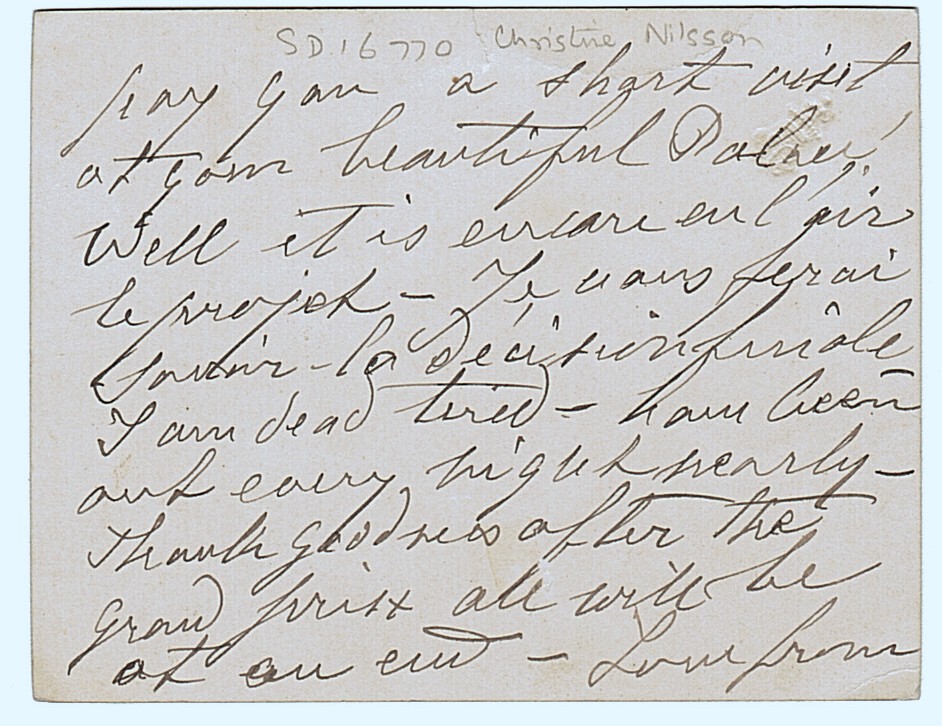 SD.16770 Christine Nilsson
pay you a short visit
at your beautiful Palace!
Well it is encore en l'air
le projet - Je vous ferai
savoir - la décision finale
I am dead tired - have been
out every night nearly -
thank goodness after the
grand prix all will be
at an end - Love from